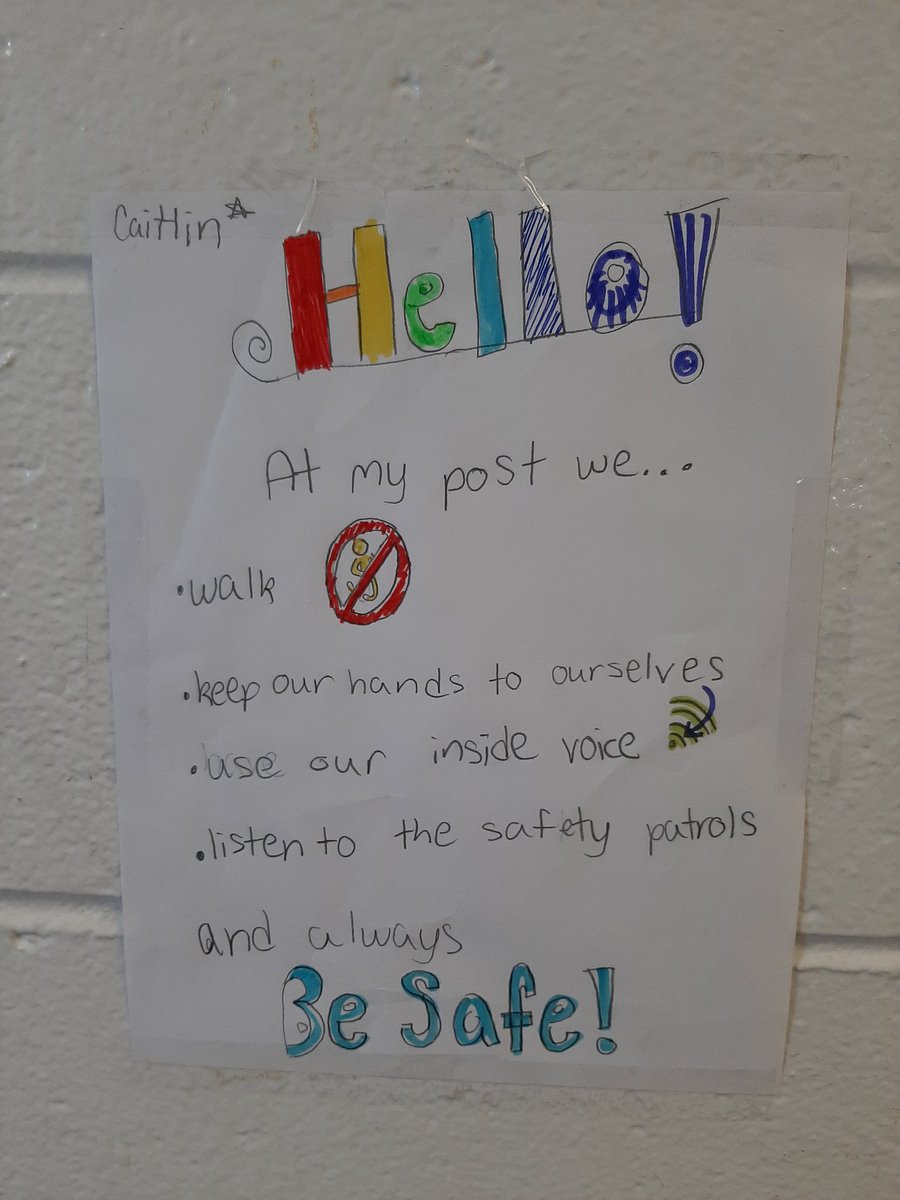 Caitlin
Hello!
At my post we...
• walk
• keep our hands to ourselves
• use our inside voice
• listen to the safety patrols
and always
Be Safe!